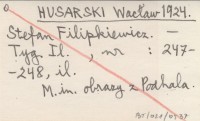 HUSARSKI Wacław 1924.
Stefan Filipkiewicz. —
Tyg. Il., nr : 247-
-248, il.
M. in. obrazy z Podhala.